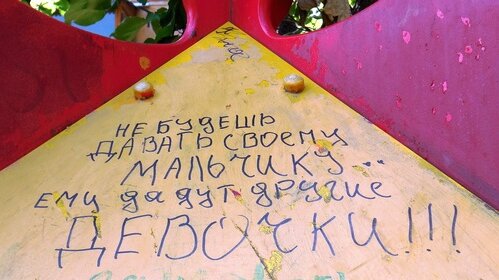 НЕ БУДЕШЬ
ДАВАТЬ СВОЕМУ
МАЛЬЧИКУ...
ЕМУ ДАДУТ ДРУГИЕ
ДЕВОЧКИ!!!